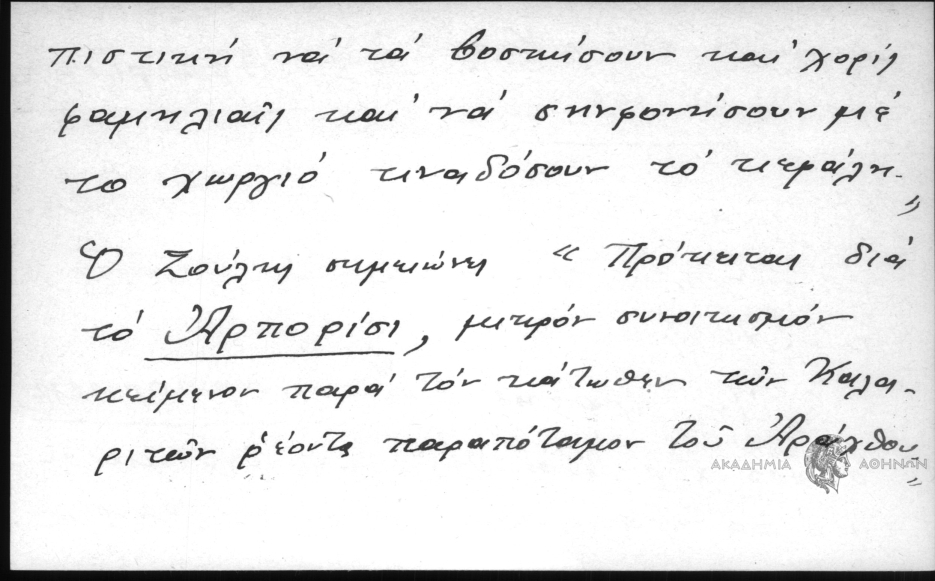 πιστική νά τά βοσκήσουν καί χορίς
φαμηλιαῖς καί νά σηνφονίσουν μέ
το χωργιό κιναδόσουν τό κεφάλη-"
Ὁ Ζούλης σημειώνει « Πρόκειται διά
τό Ἀρπορίσι, μικρόν συνοικισμόν
κείμενον παρά τόν κάτωθεν τῶν Καλα-
ριτῶν ῥέοντα παραπόταμον τοῦ Ἀράχθου"
ΑΚΑΔΗΜΙΑ ΑΘΗΝΩΝ